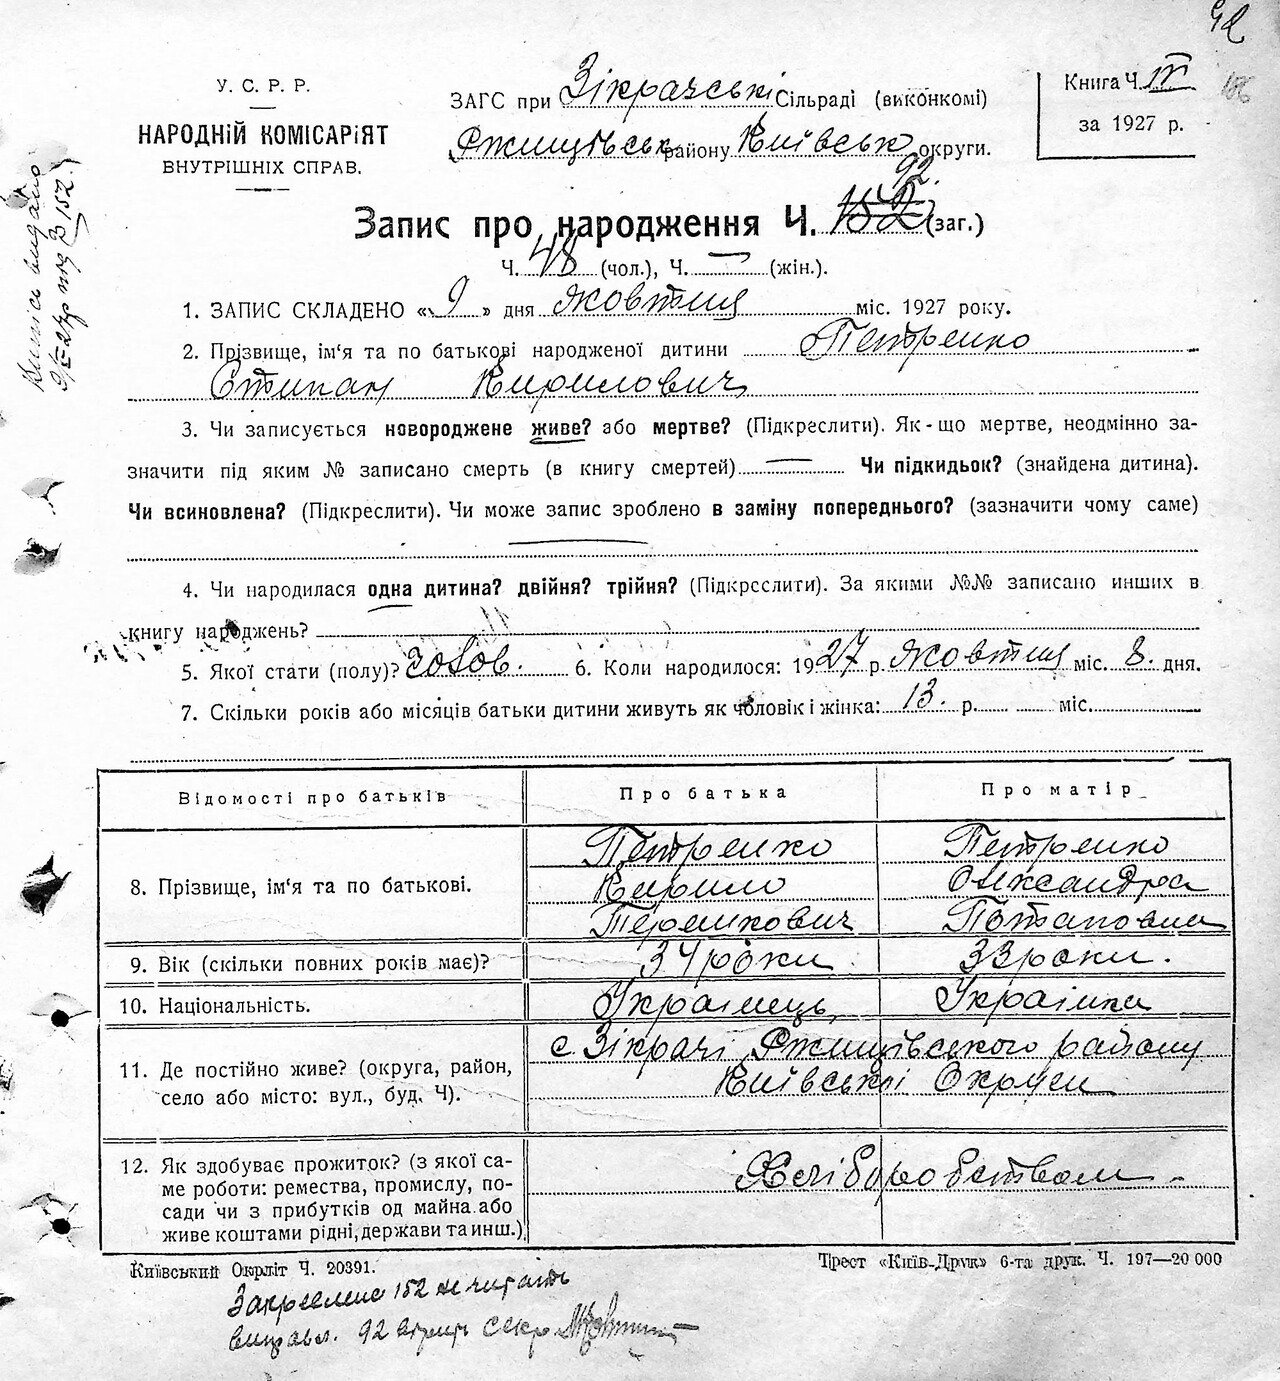 92
У. С. Р. Р.
НАРОДНІЙ КОМІСАРІЯТ
ВНУТРІШНІХ СПРАВ.
ЗАГС при Зікрачські Сільраді (виконкомі)
Ржищівськ району Київськ округи.
Книга Ч. IV
за 1927 р.
106
Випись видано
під № 152
92.
Запис про народження Ч. 152 (заг.)
Ч. 48 (чол.), Ч. — (жін.).
1. ЗАПИС СКЛАДЕНО «9» дня жовтня міс. 1927 року.
2. Прізвище, ім‘я та по батькові народженої дитини Петренко
Степан Кирилович
3. Чи записується новороджене живе? або мертве? (Підкреслити). Як-що мертве, неодмінно за-
значити під яким № записано смерть (в книгу смертей) — Чи підкидьок? (знайдена дитина).
Чи всиновлена? (Підкреслити). Чи може запис зроблено в заміну попереднього? (зазначити чому саме)
4. Чи народилася одна дитина? двійня? трійня? (Підкрсслити). За якими №№ записано инших в
книгу народжень?
5. Якої стати (полу)? чолов. 6. Коли народилося: 1927 р. жовтня міс. 8. дня.
7. Скільки років або місяців батьки дитини живуть як чоловік і жінка: 13. р. міс.
Відомості про батьків Про батька Про матір
8. Прізвище, ім‘я та по батькові.
Петренко Петренко
Кирило Олександра
Терешкович Потаповна
9. Вік (скільки повних років має)? 34 роки 33 роки.
10. Національність. Українець Українка
11. Де постійно живе? (округа, район,
село або місто: вул., буд. Ч).
с Зікрачі Ржищівського району
Київської Округи
12. Як здобуває прожиток? (з якої са-
ме роботи: ремества, промислу, по-
сади чи з прибутків од майна або
живе коштами рідні, держави та инш.)
Хліборобством
Київський Окрліт Ч. 20391.
Трест «Київ-Друк» 6-та друк. Ч. 197—20 000
Закреслене 152 не читать
92 секр